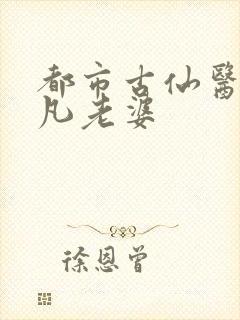 都市古仙醫
凡老婆
徐恩曾